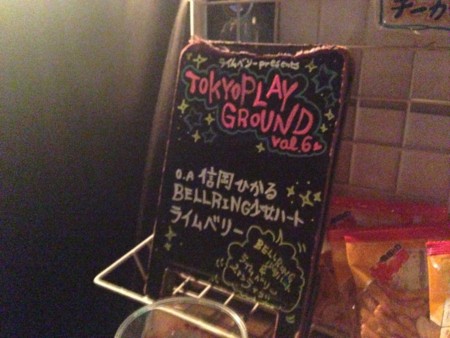 ライムベリーpresents
TOKYO PLAY
GROUND
vol.6
O.A 信岡ひかる
BELLRING少女ハート
ライムベリー
チーカ